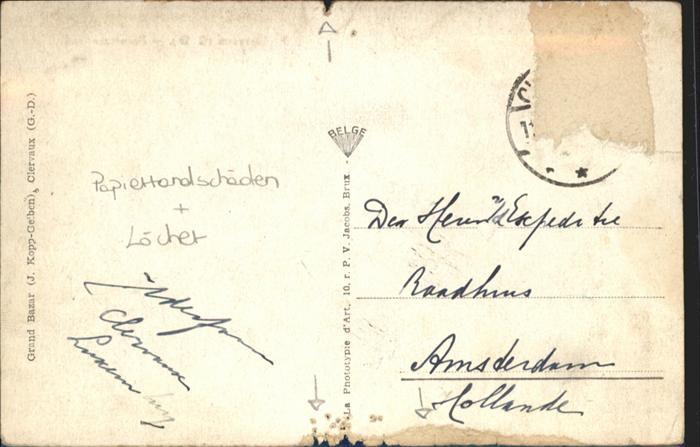 Grand Bazar (J. Kopp-Geiben), Clervaux (G.-D.)
Papierrandschäden
+
Löcher
Clervaux
Luxemburg
BELGE
La Photoypie d'Art, 10, r. P. V. Jacobs, Brux.
Den Heeren
Raadhuis
Amsterdam
Hollande